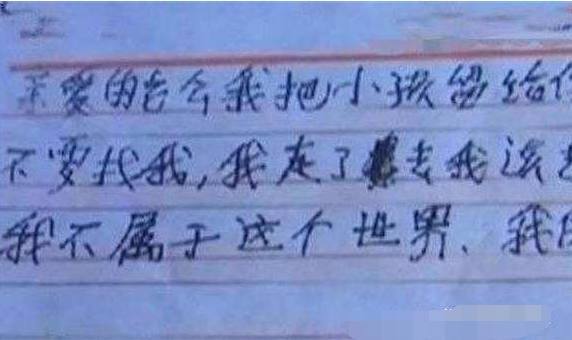 亲爱的老公我把小孩留给你
不要找我,我走了去我该去
我不属于这个世界、我